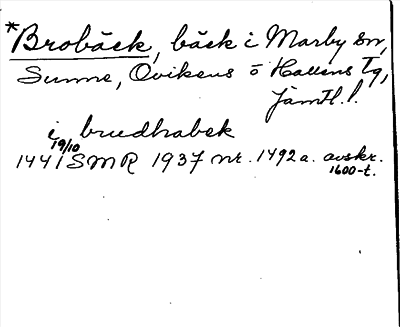 *Brobäck, bäck i Marby sn,
Sunne, Ovikens o Hallens Tg,
Jämtl. l.
i brudhabek
19/10
1441 SMR 1937 nr. 1492a. avskr.
1600-t.